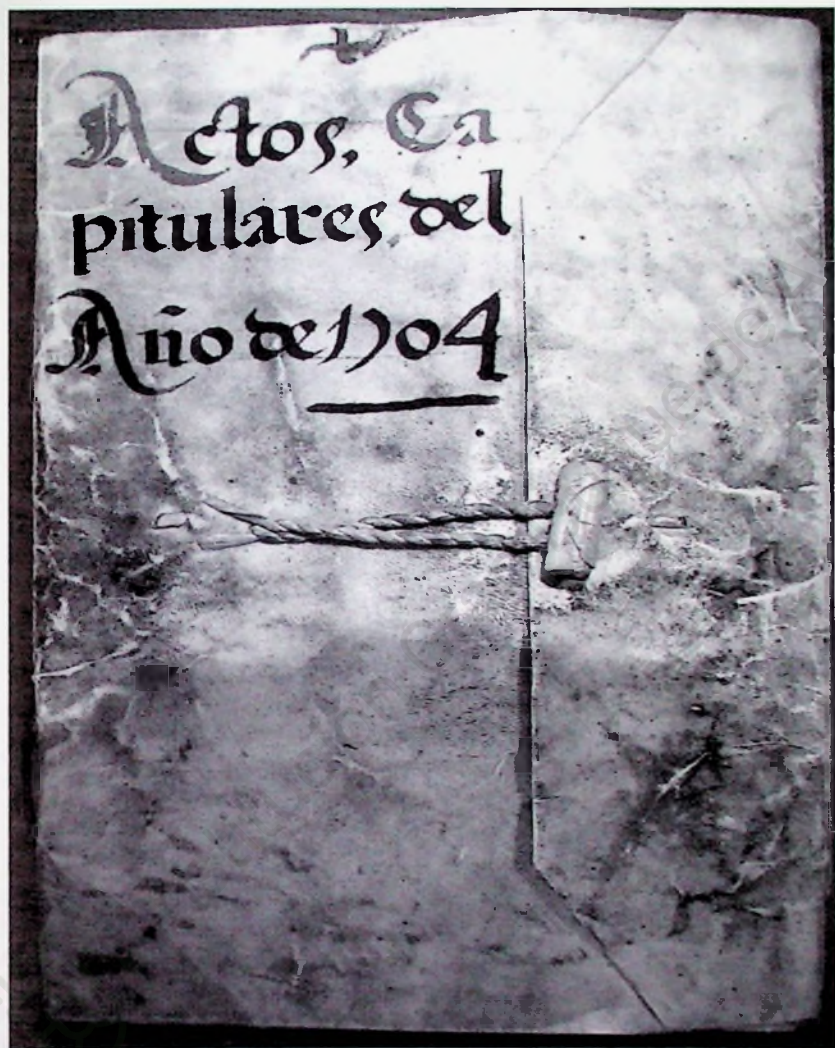 Actos, Ca
pitulares del
Año de 1704